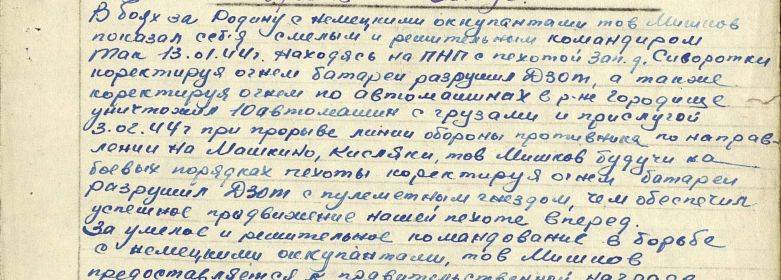 В боях за Родину с немецкими оккупантами тов Мишков
показал себя смелым и решительным командиром
Так 13.01.44г. находясь на ПНП с пехотой зап. д. Сиворотки
коректируя огнем батареи разрушил Дзот, а также
коректируя огнем по автомашинах в р-не Городище
уничтожил 10 автомашин с грузами и прислугой
3.02.44г при прорыве линии обороны противника по направ-
лении на Машкино, Кисляки, тов Мишков будучи на
боевых порядках пехоты коректируя огнем батареи
разрушил Дзот с пулеметным гнездом, чем обеспечил
успешное продвижение нашей пехоте вперед.
За умелое и решительное командование в борьбе
с немецкими оккупантами, тов Мишков
предоставляется к правительственной награде